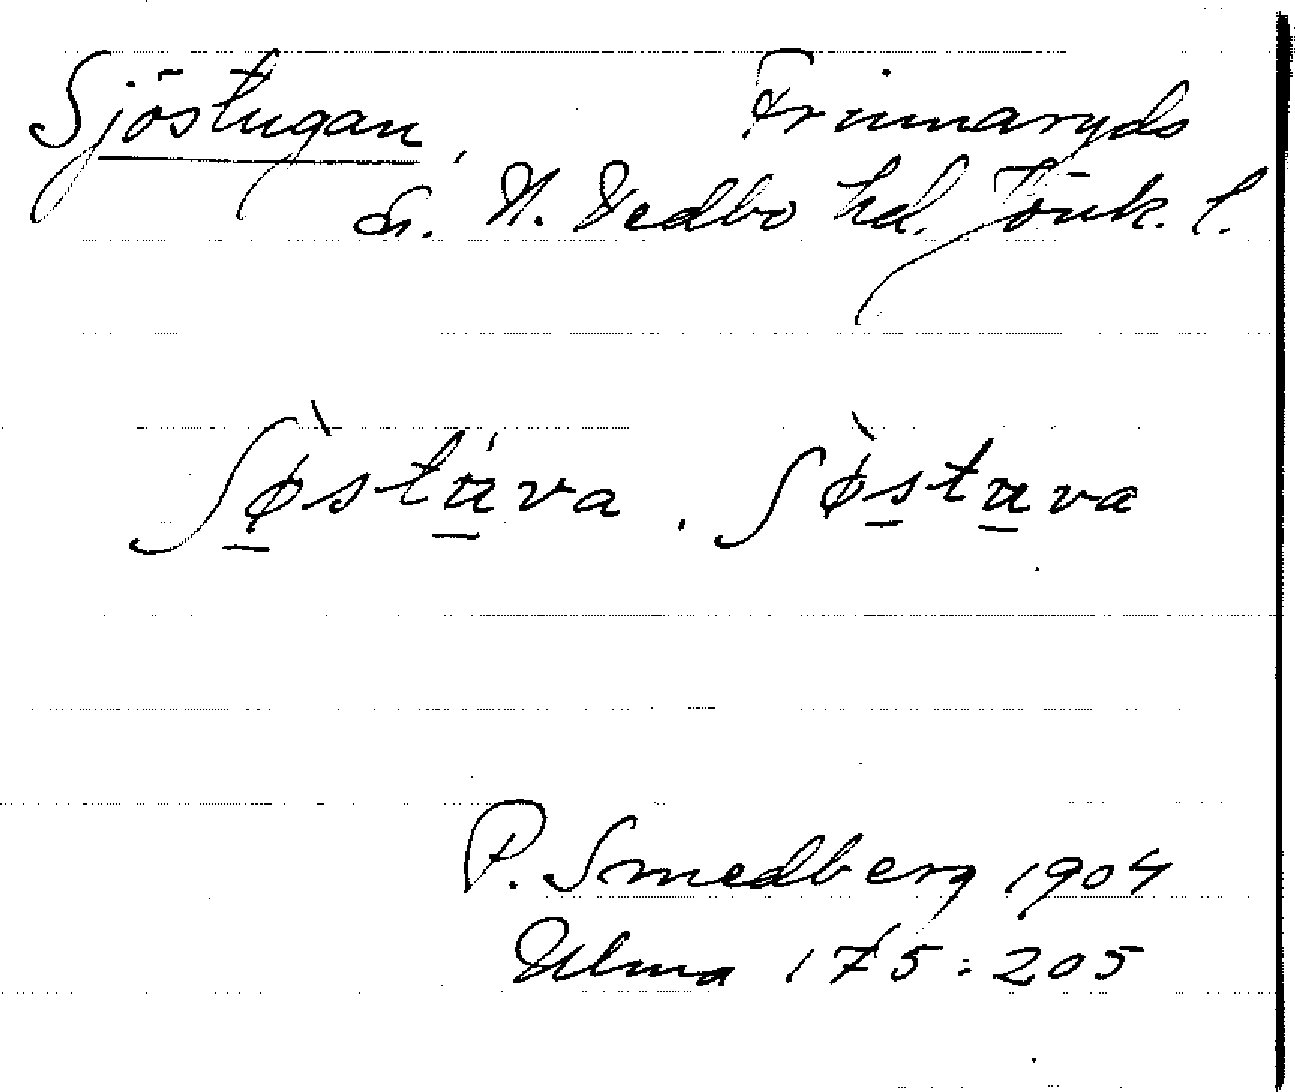 Sjöstugan, Frinnaryds
sn. N. Vedbo hd. Jönk. l.
ʃø̀stúva. ʃø̀stuva
P. Smedberg 1904
Ulma 175:205